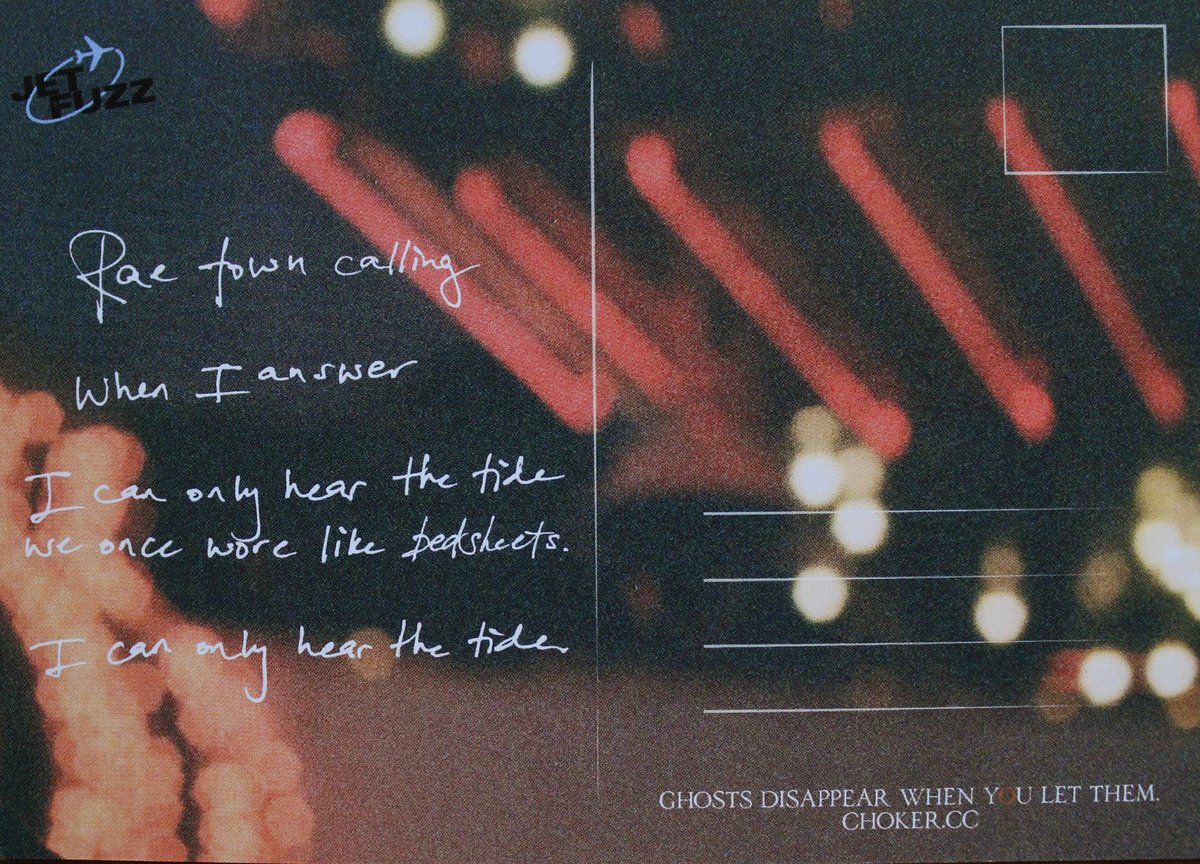 JET
FUZZ
Rae town calling
When I answer
I can only hear the tide
we once wore like bedsheets.
I can only hear the tide
GHOSTS DISAPPEAR WHEN YOU LET THEM.
CHOKER.CC